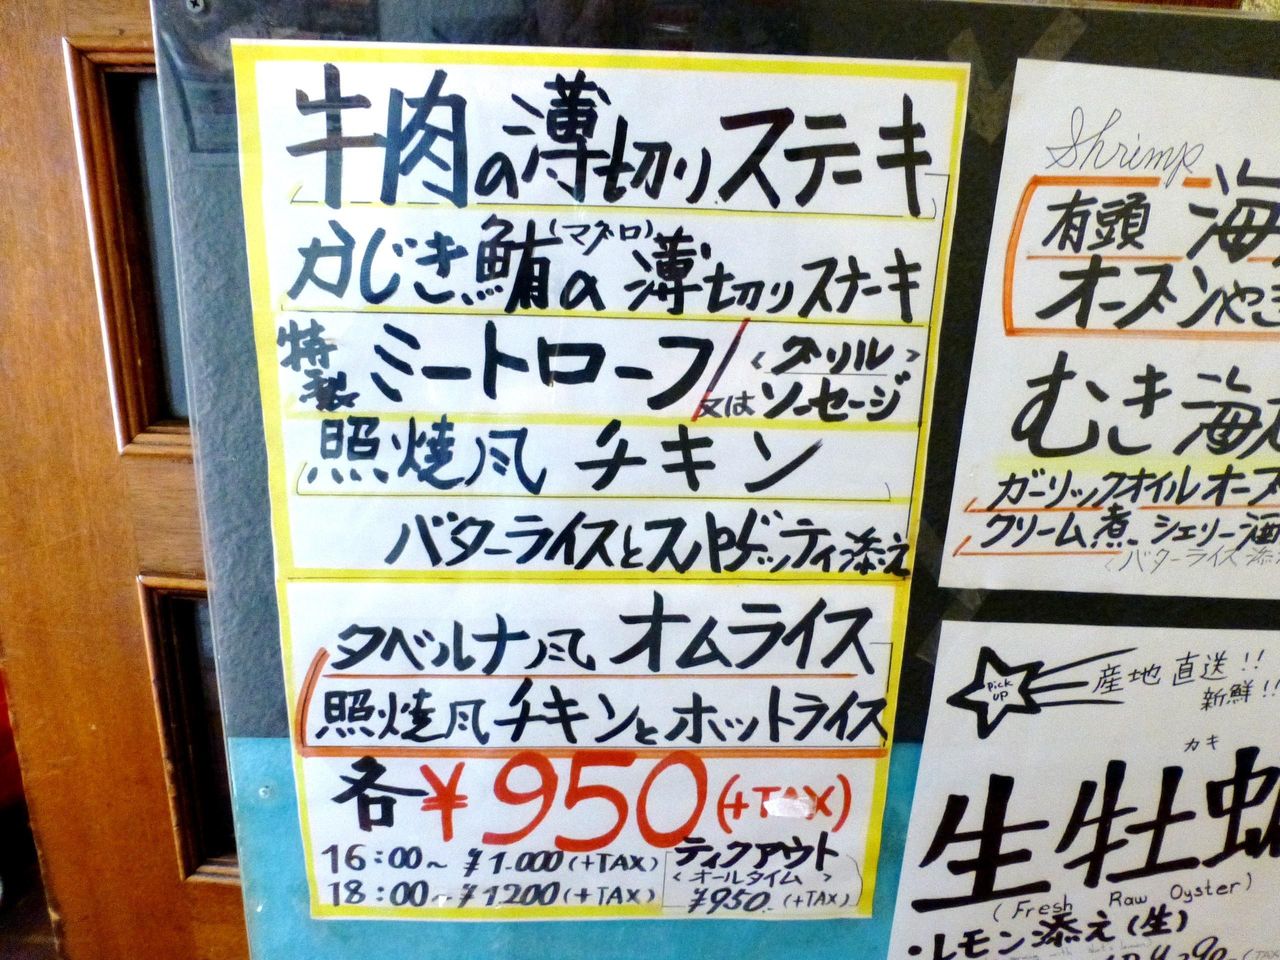 牛肉の薄切りステーキ
かじき鮪(マグロ)の薄切りステーキ
特製 ミートローフ/又は<グリル>ソーセージ
照焼風 チキン
バターライスとスパゲッティ添え
タベルナ風 オムライス
照焼風チキンとホットライス
各¥950(+TAX)
16:00~ ¥1.000(+TAX)
18:00~¥1200(+TAX)
ティクアウト
<オールタイム>
¥950.(+TAX)
Shrimp
有頭 海
オーブンやき
むき海
ガーリックオイルオーブ
クリーム煮 シェリー酒
<バターライス添
Pick UP
産地直送!!
新鮮!!
カキ
生牡蛎
(Fresh Raw Oyster)
・レモン添え(生)